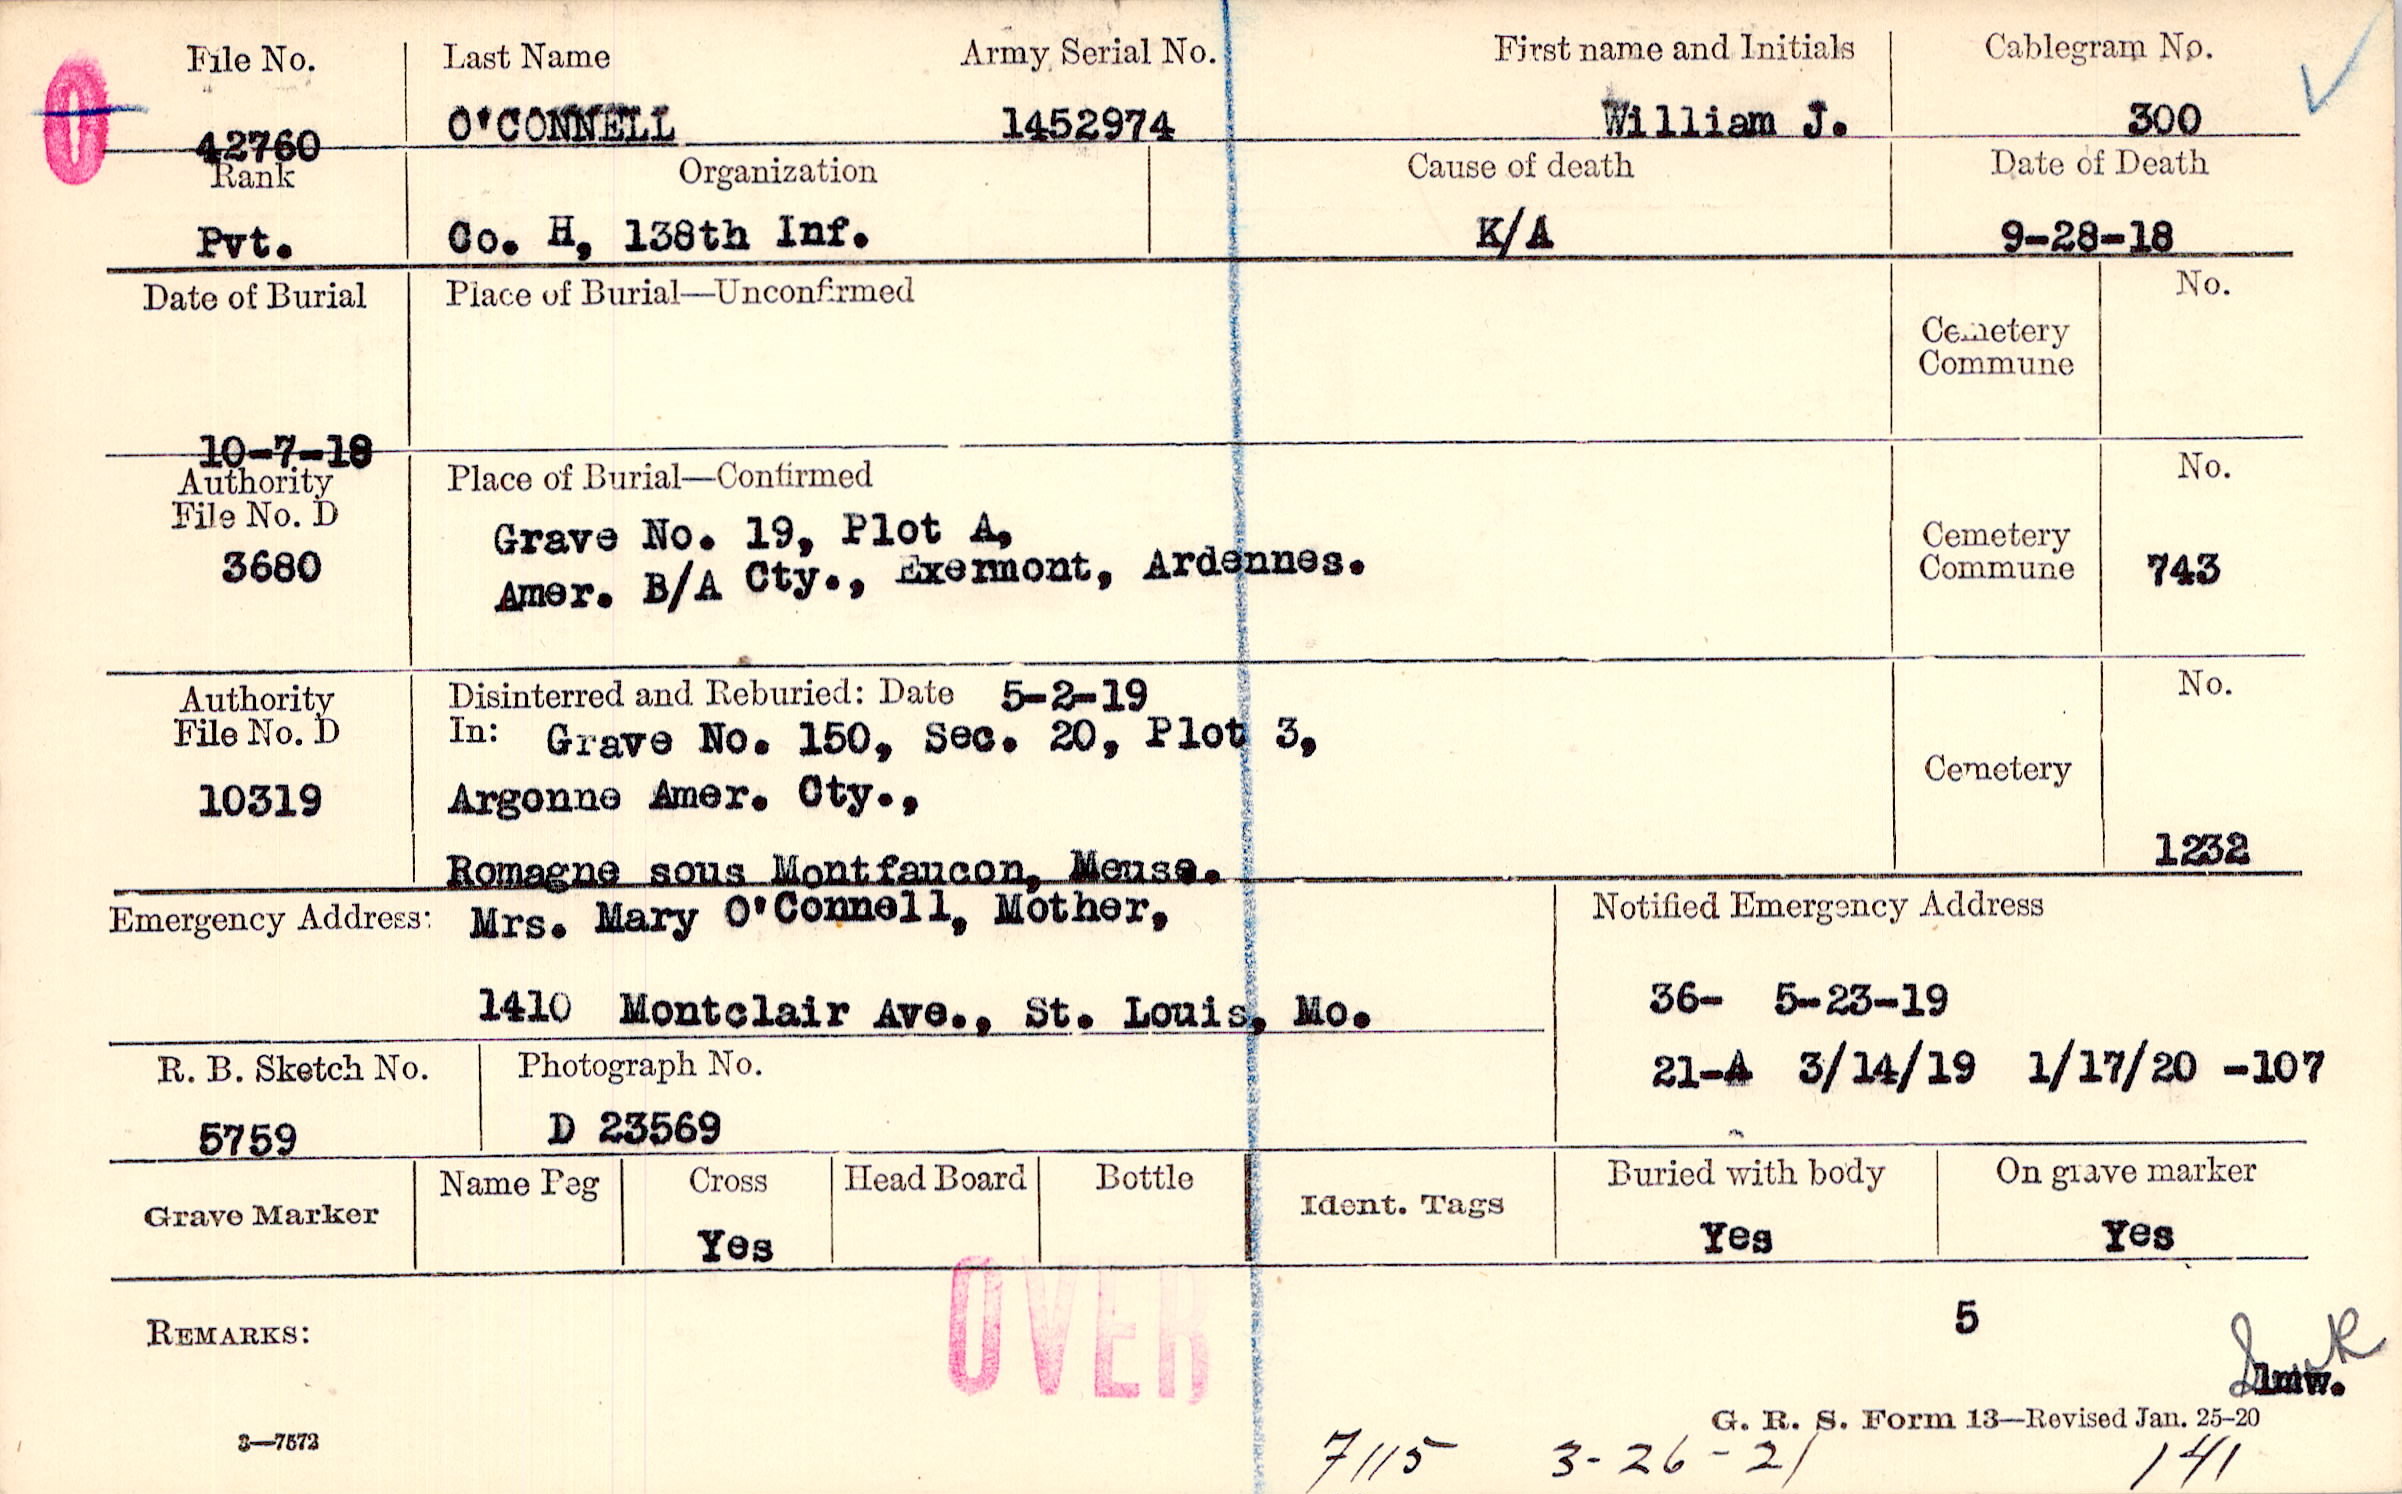 File No. Last Name Army Serial No. First name and Initials Cablegram No.
O
42760 O'CONNELL 1452974 William J. 300
Rank Organization Cause of death Date of Death
Pvt. Co. H, 138th Inf. K/A 9-28-18
Date of Burial Place of Burial—Unconfirmed No.
Cemetery
Commune
10-7-18
Authority Place of Burial—Confirmed No.
File No. D
Grave No. 19, Plot A, Cemetery
3680 Amer. B/A Cty., Exermont, Ardennes. Commune 743
Authority Disinterred and Reburied: Date 5-2-19 No.
File No. D In: Grave No. 150, Sec. 20, Plot 3,
Cemetery
10319 Argonne Amer. Cty.,
Romagne sous Montfaucon, Meuse. 1232
Emergency Address: Mrs. Mary O'Connell, Mother, Notified Emergency Address
1410 Montclair Ave., St. Louis, Mo. 36- 5-23-19
R. B. Sketch No. Photograph No. 21-A 3/14/19 1/17/20 -107
5759 D 23569
Grave Marker Name Peg Cross Head Board Bottle Ident. Tags Buried with body On grave marker
Yes Yes Yes
OVER
5
REMARKS:
lmw.
G. R. S. Form 13—Revised Jan. 25-20
3—7573
7115 3-26-21 141